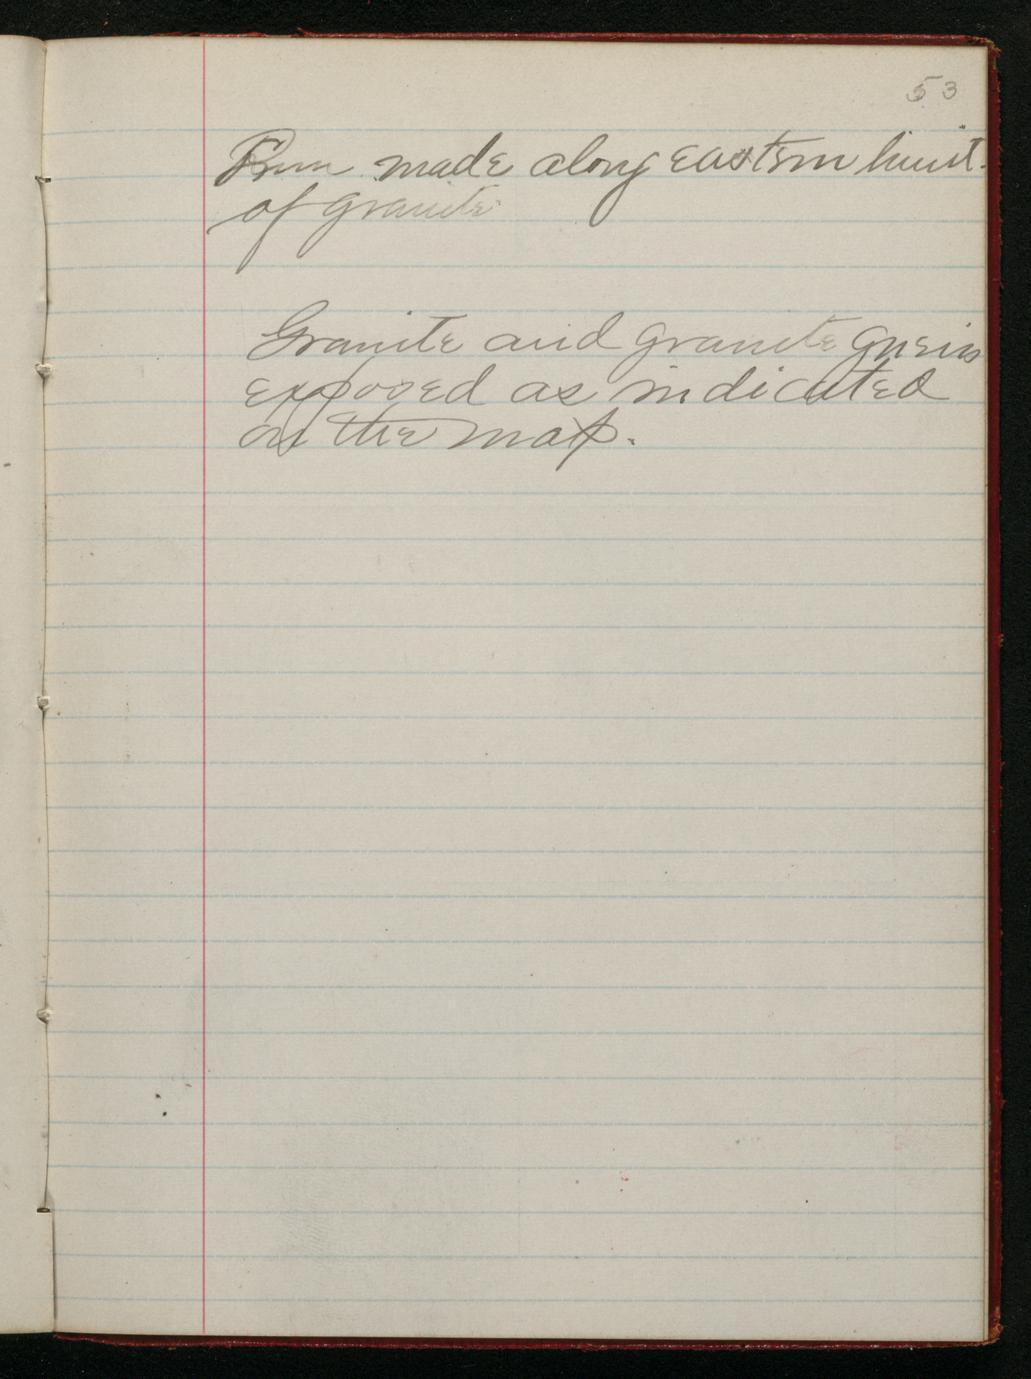 53
Run made along eastern limit
of granite
Granite and granite gneiss
exposed as indicated
on the map.